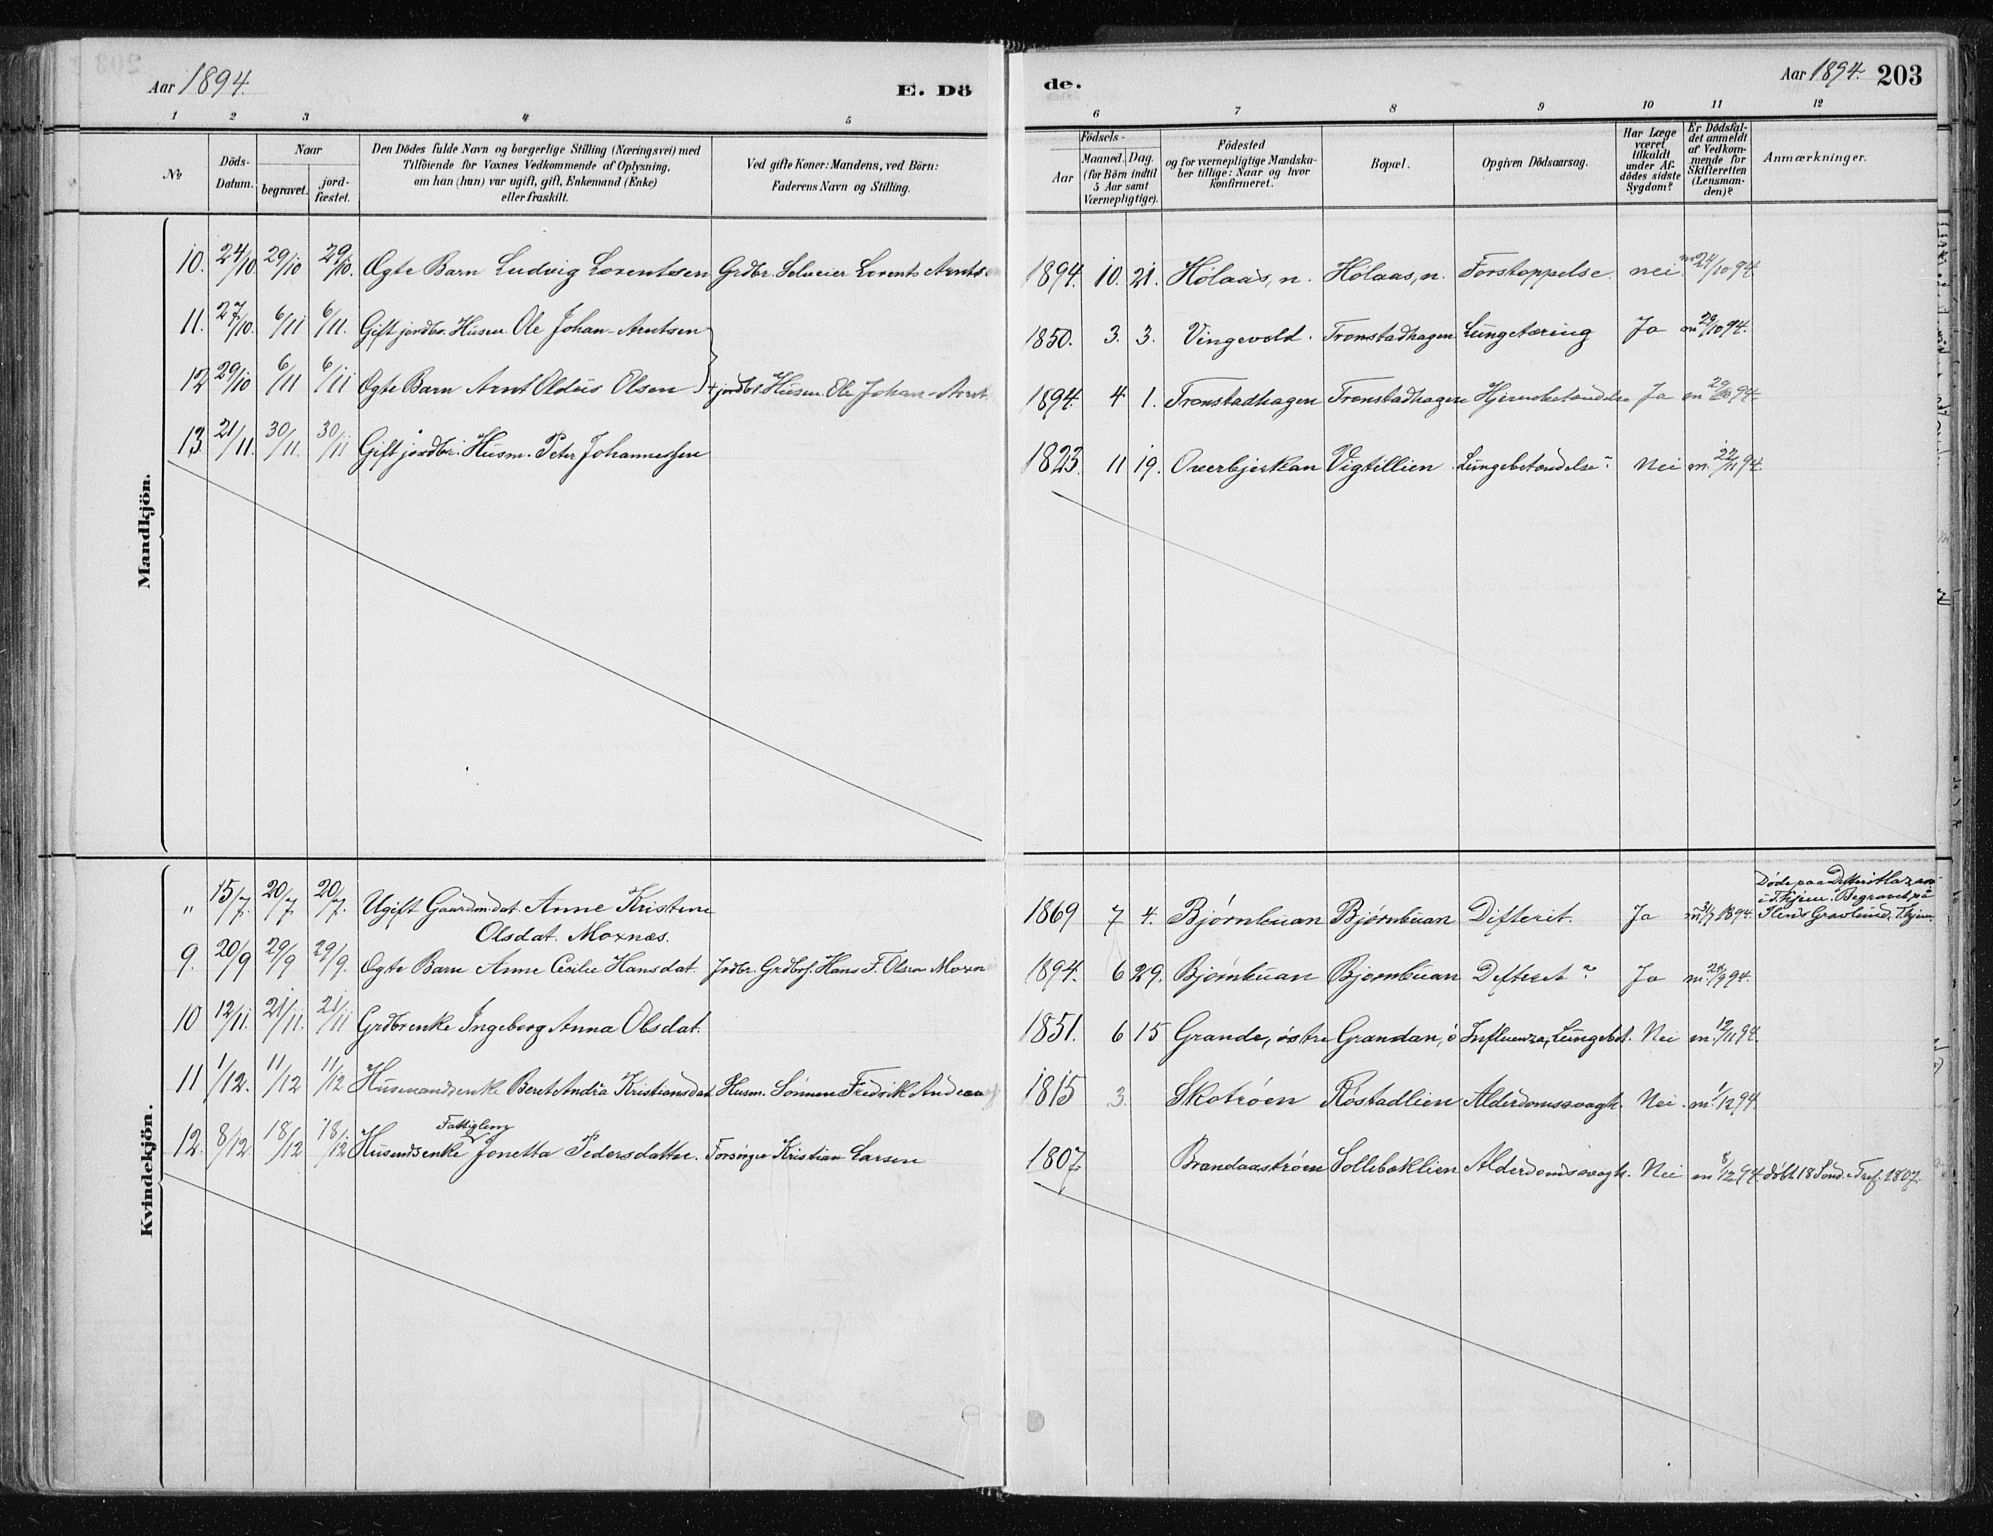 Aar 1894.
E. Dö
1 2 3 4 5
No
Döds-Datum.
Naar
begravet.
jord-fæstet.
Den Dödes fulde Navn og borgerlige Stilling (Næringsvei) med
Tilföiende for Voxnes Vedkommende af Oplysning,
om han (hun) var ugift, gift, Enkemand (Enke)
eller fraskilt.
Ved gifte Koner: Mandens, ved Börn:
Faderens Navn og Stilling.
Mandkjön.
10. 24/10. 29/10 29/10. Ægte Barn Ludvig Lorentsen Grdbr. Selveier Lorents Arnts
11. 27/10. 6/11 6/11. Gift jordbr. Husm. Ole Johan Arntsen
12 29/10 6/11 6/11 Ægte Barn Arnt Oldus Olsen jordbr. Husm. Ole Johan Arnt
13. 21/11. 30/11. 30/11 Gift jordbr. Husm. Peter Johannessen
Kvindekjön.
" 15/7. 20/7 20/7. Ugift Gaardm.dat. Anne Kristine
Olsdat. Moxnes.
9. 20/9 29/9 29/9. Ægte Barn Anne Cecilie Hansdat. Jrdbr. Grdbr. Hans F. Olsen Moxn
10 12/11. 21/11. 21/11 Grdbrenke Ingeborg Anna Olsdat.
11 1/12. 11/12 11/12 Husmandsenke Beret Andrea Kristiansdat Husm. Sönnen Fredrik Andreas
Fattiglem
12. 8/12 18/12 18/12 Husmdsenke Jonetta Pedersdatter. Forsörger Kristian Larsen
de.
Aar 1894. 203
6 7 8 9 10 11 12
Födsels-
Aar
Maaned. Dag.
(for Börn indtil
5 Aar samt
Værnepligtige).
Födested
og for værnepligtige Mandska-
ber tillige: Naar og hvor
konfirmeret.
Bopæl.
Opgiven Dödsaarsag.
Har Læge
været
tilkaldt
under Af-
dödes sidste
Sygdom?
Er Dödsfal-
det anmeldt
af Vedkom-
mende for
Skifteretten
(Lensman-
den)?
Anmærkninger.
1894. 10. 21. Hölaas, n. Hölaas, n. Forstoppelse. nei m 24/10 94.
1850. 3. 3. Vingevold. Tronstadhagen Lungetæring Ja m 29/10 94.
1894. 4 1. Tronstadhagen Tronstadhagen Hjernebetændelse Ja m 29/10 94.
1823. 11 19. Overbjerkan Vigtillien Lungebetændelse Nei m. 22/11 94.
Døde paa
i Thjem. Begravet på
1869 7 4. Bjørnbuan Bjørnbuan Difterit. Ja m 31/7 1894. Ilens Gravlund, Thjem.
1894. 6 29. Bjørnbuan Bjørnbuan Difterit Ja m. 9 94.
1851. 6 15 Grande, östre Grandan, ö Influenza, Lungebet. Nei m. 12/11 94.
1815 3. Skotröen Röstadlien Alderdomssvagh. Nei. m. 1/12 94.
1807 Brandaaströen Sollibaklien Alderdomssvagh. Nei m 8/12 94. döbt 18 Sönd. e. Tref. 1807.